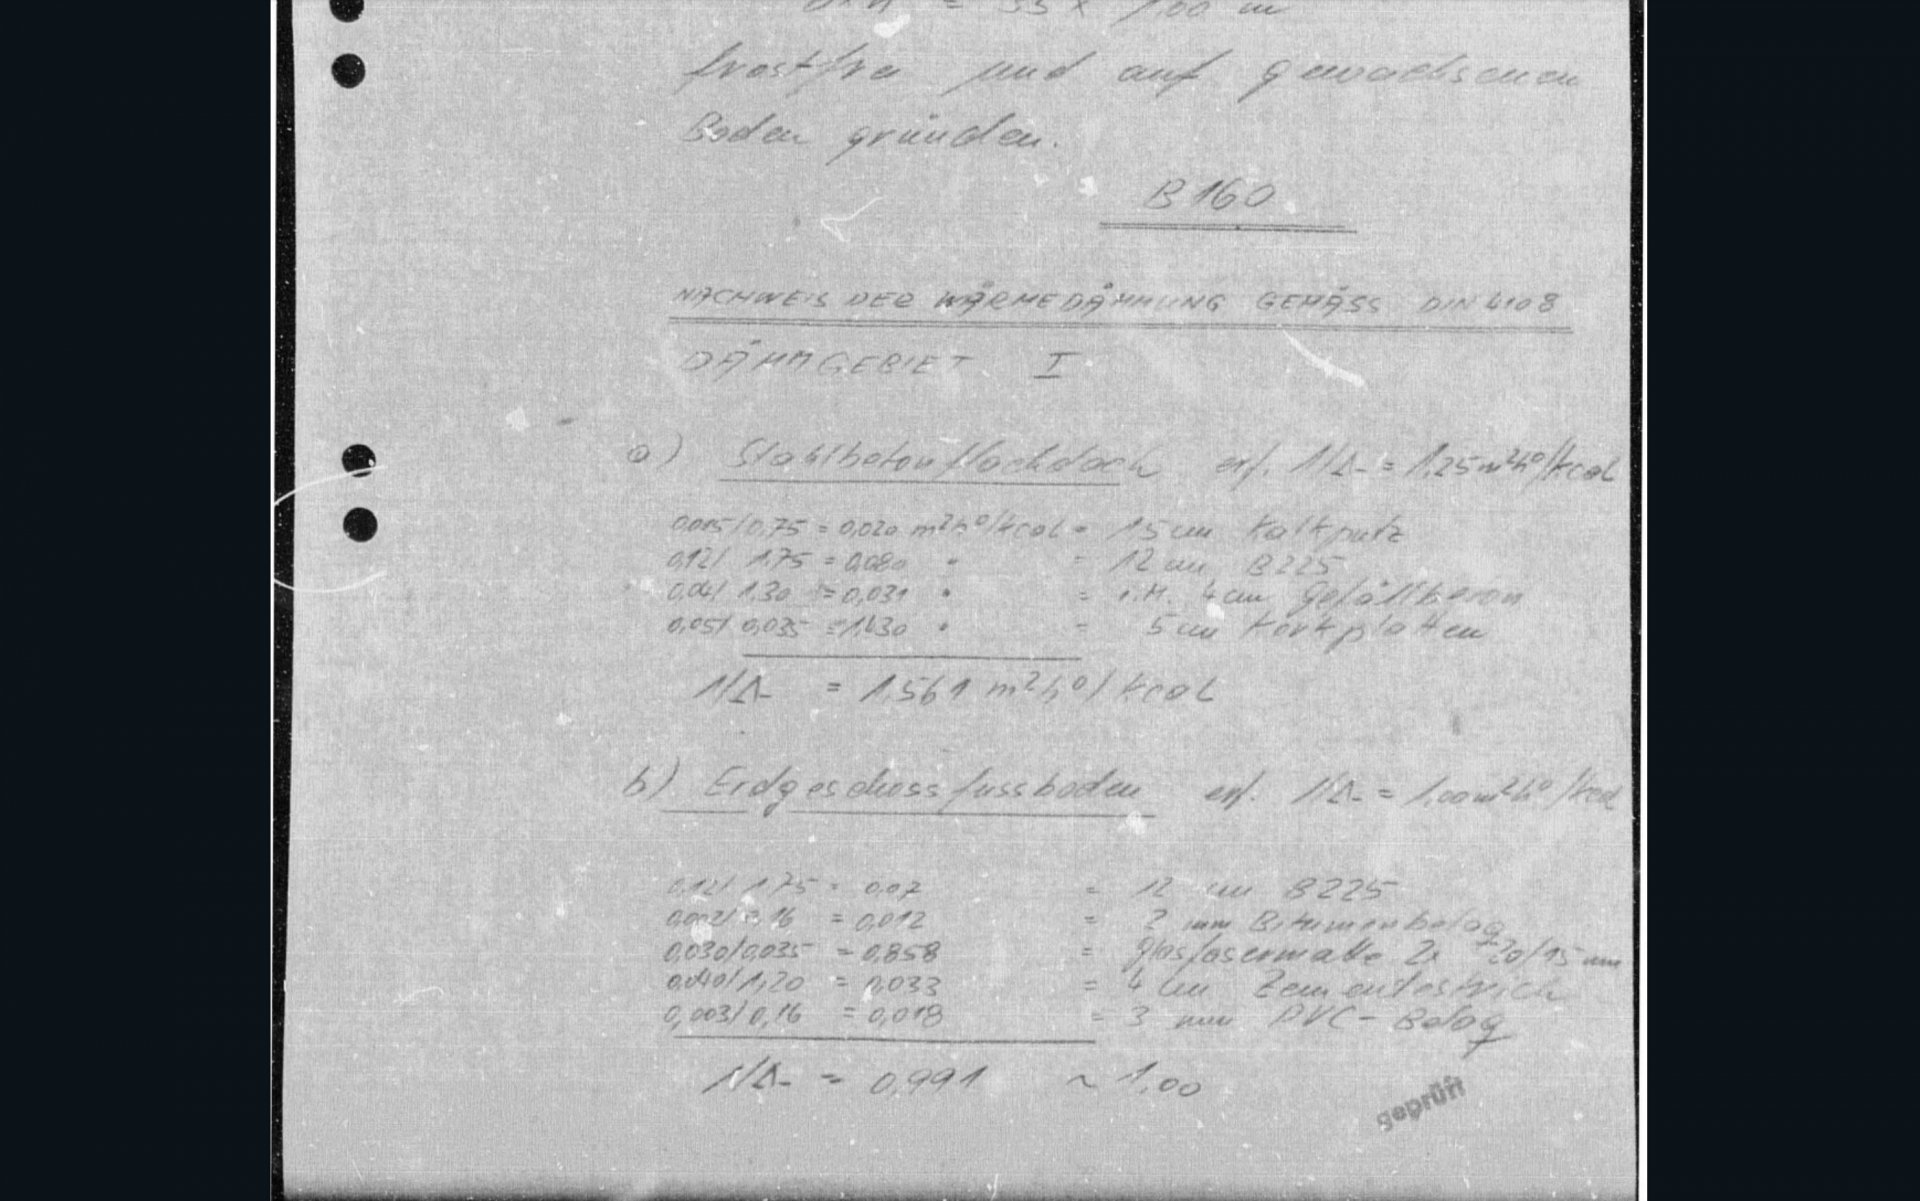 b x h = 35 x 1,00 m
frostfrei und auf gewachsenen
Boden gründen.
B 160
NACHWEIS DER WÄRMEDÄMMUNG GEMÄSS DIN 4108
DÄMMGEBIET I
a) Stahlbetonflachdach erf. 1/Λ = 1,25 m²h°/kcal
0,015/0,75 = 0,020 m²h°/kcal = 1,5 cm Kalkputz
0,12/ 1,75 = 0,080 " = 12 cm B225
0,04/ 1,30 = 0,031 " = i.M. 4 cm Gefällbeton
0,05/ 0,035 = 1,430 " = 5 cm Korkplatten
1/Λ = 1,561 m²h°/kcal
b) Erdgeschossfussboden erf. 1/Λ = 1,00 m²h°/kcal
0,12/ 1,75 = 0,07 = 12 cm B225
0,002/ 0,16 = 0,012 = 2 mm Bitumenbelag
0,030/0,035 = 0,858 = Glasfasermatte 2x 20/15 mm
0,040/1,20 = 0,033 = 4 cm Zementestrich
0,003/ 0,16 = 0,018 = 3 mm PVC-Belag
1/Λ = 0,991 ~ 1,00
geprüft